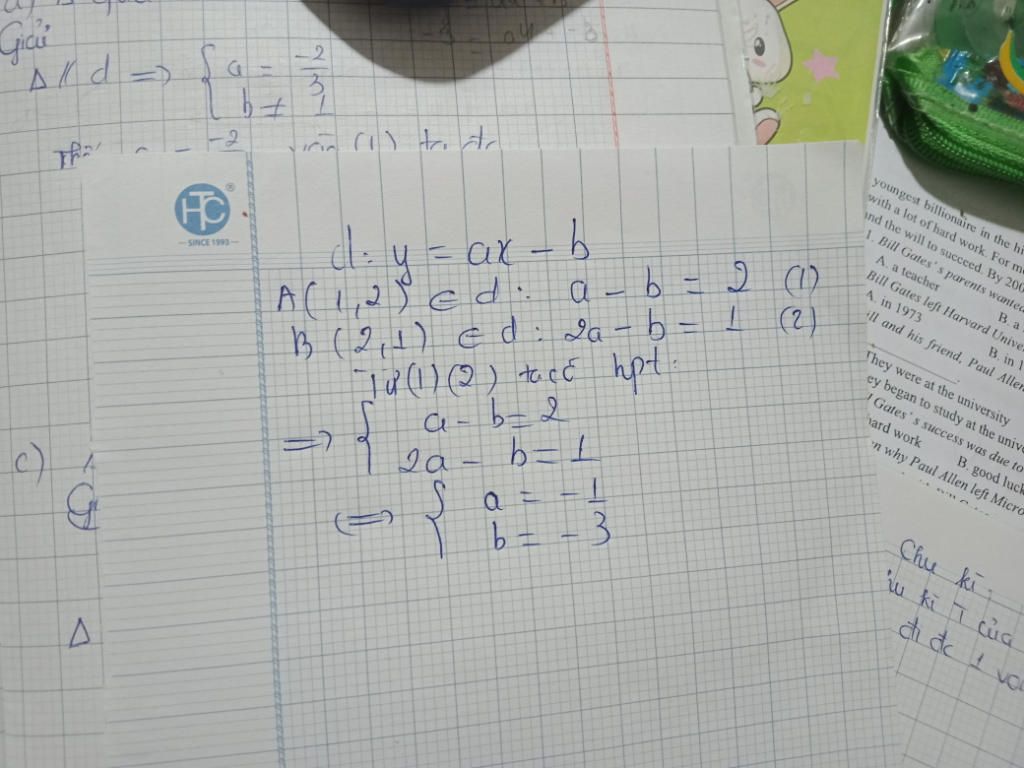 Giải
Δ // d => { a = -2/3
b ≠ 1
-2
(1)
HTC ®
— SINCE 1993 —
d: y = ax - b
A(1,2) ∈ d: a - b = 2 (1)
B(2,1) ∈ d: 2a - b = 1 (2)
Từ (1) (2) ta có hpt:
=> { a - b = 2
2a - b = 1
<=> { a = -1
b = -3
c)
G
Δ
youngest billionaire in the
with a lot of hard work. For
and the will to succeed. By 200
1. Bill Gates's parents wanted
A. a teacher
B. a
Bill Gates left Harvard
A. in 1973
B. in 1
ill and his friend, Paul Allen
They were at the university
ey began to study at the
Gates's success was due to
hard work
B. good luck
n why Paul Allen left Micro
Chu kì
kì T của
đi đc 1